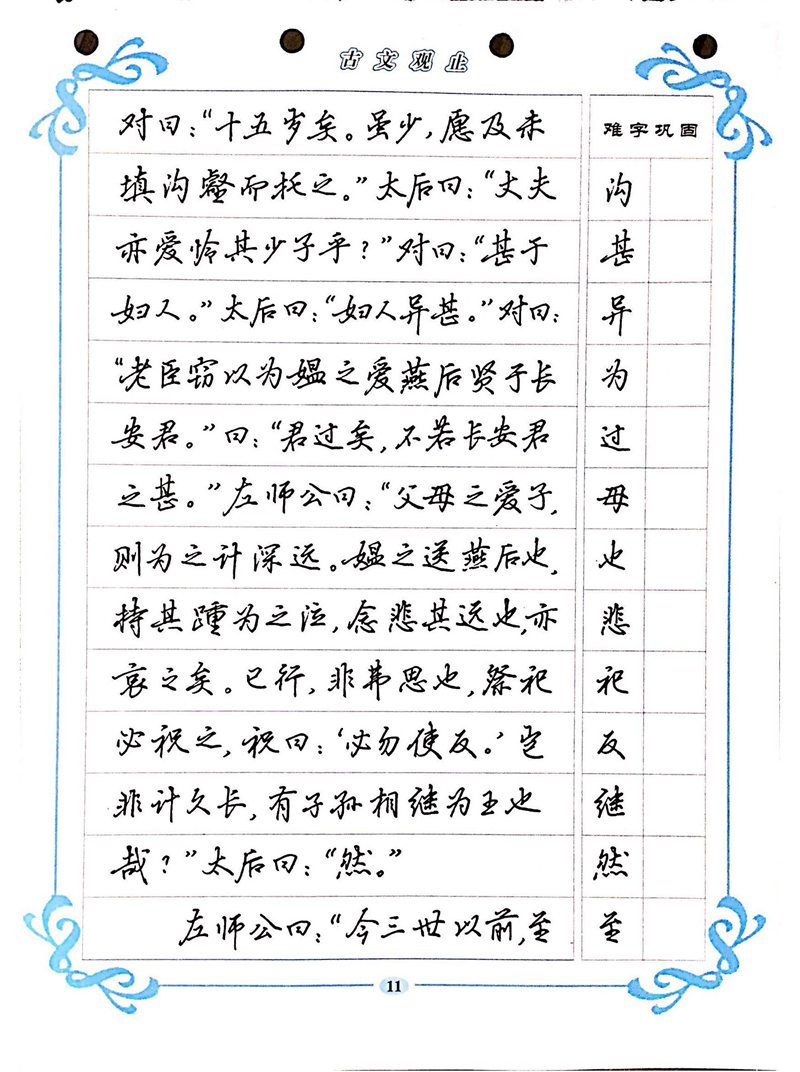 古文观止
对曰：“十五岁矣。虽少，愿及未
填沟壑而托之。”太后曰：“丈夫
亦爱怜其少子乎？”对曰：“甚于
妇人。”太后曰：“妇人异甚。”对曰：
“老臣窃以为媪之爱燕后贤于长
安君。”曰：“君过矣，不若长安君
之甚。”左师公曰：“父母之爱子，
则为之计深远。媪之送燕后也，
持其踵为之泣，念悲其远也，亦
哀之矣。已行，非弗思也，祭祀
必祝之，祝曰：‘必勿使反。’岂
非计久长，有子孙相继为王也
哉？”太后曰：“然。”
左师公曰：“今三世以前，至
难字巩固
沟
甚
异
为
过
母
也
悲
祀
反
继
然
至
11